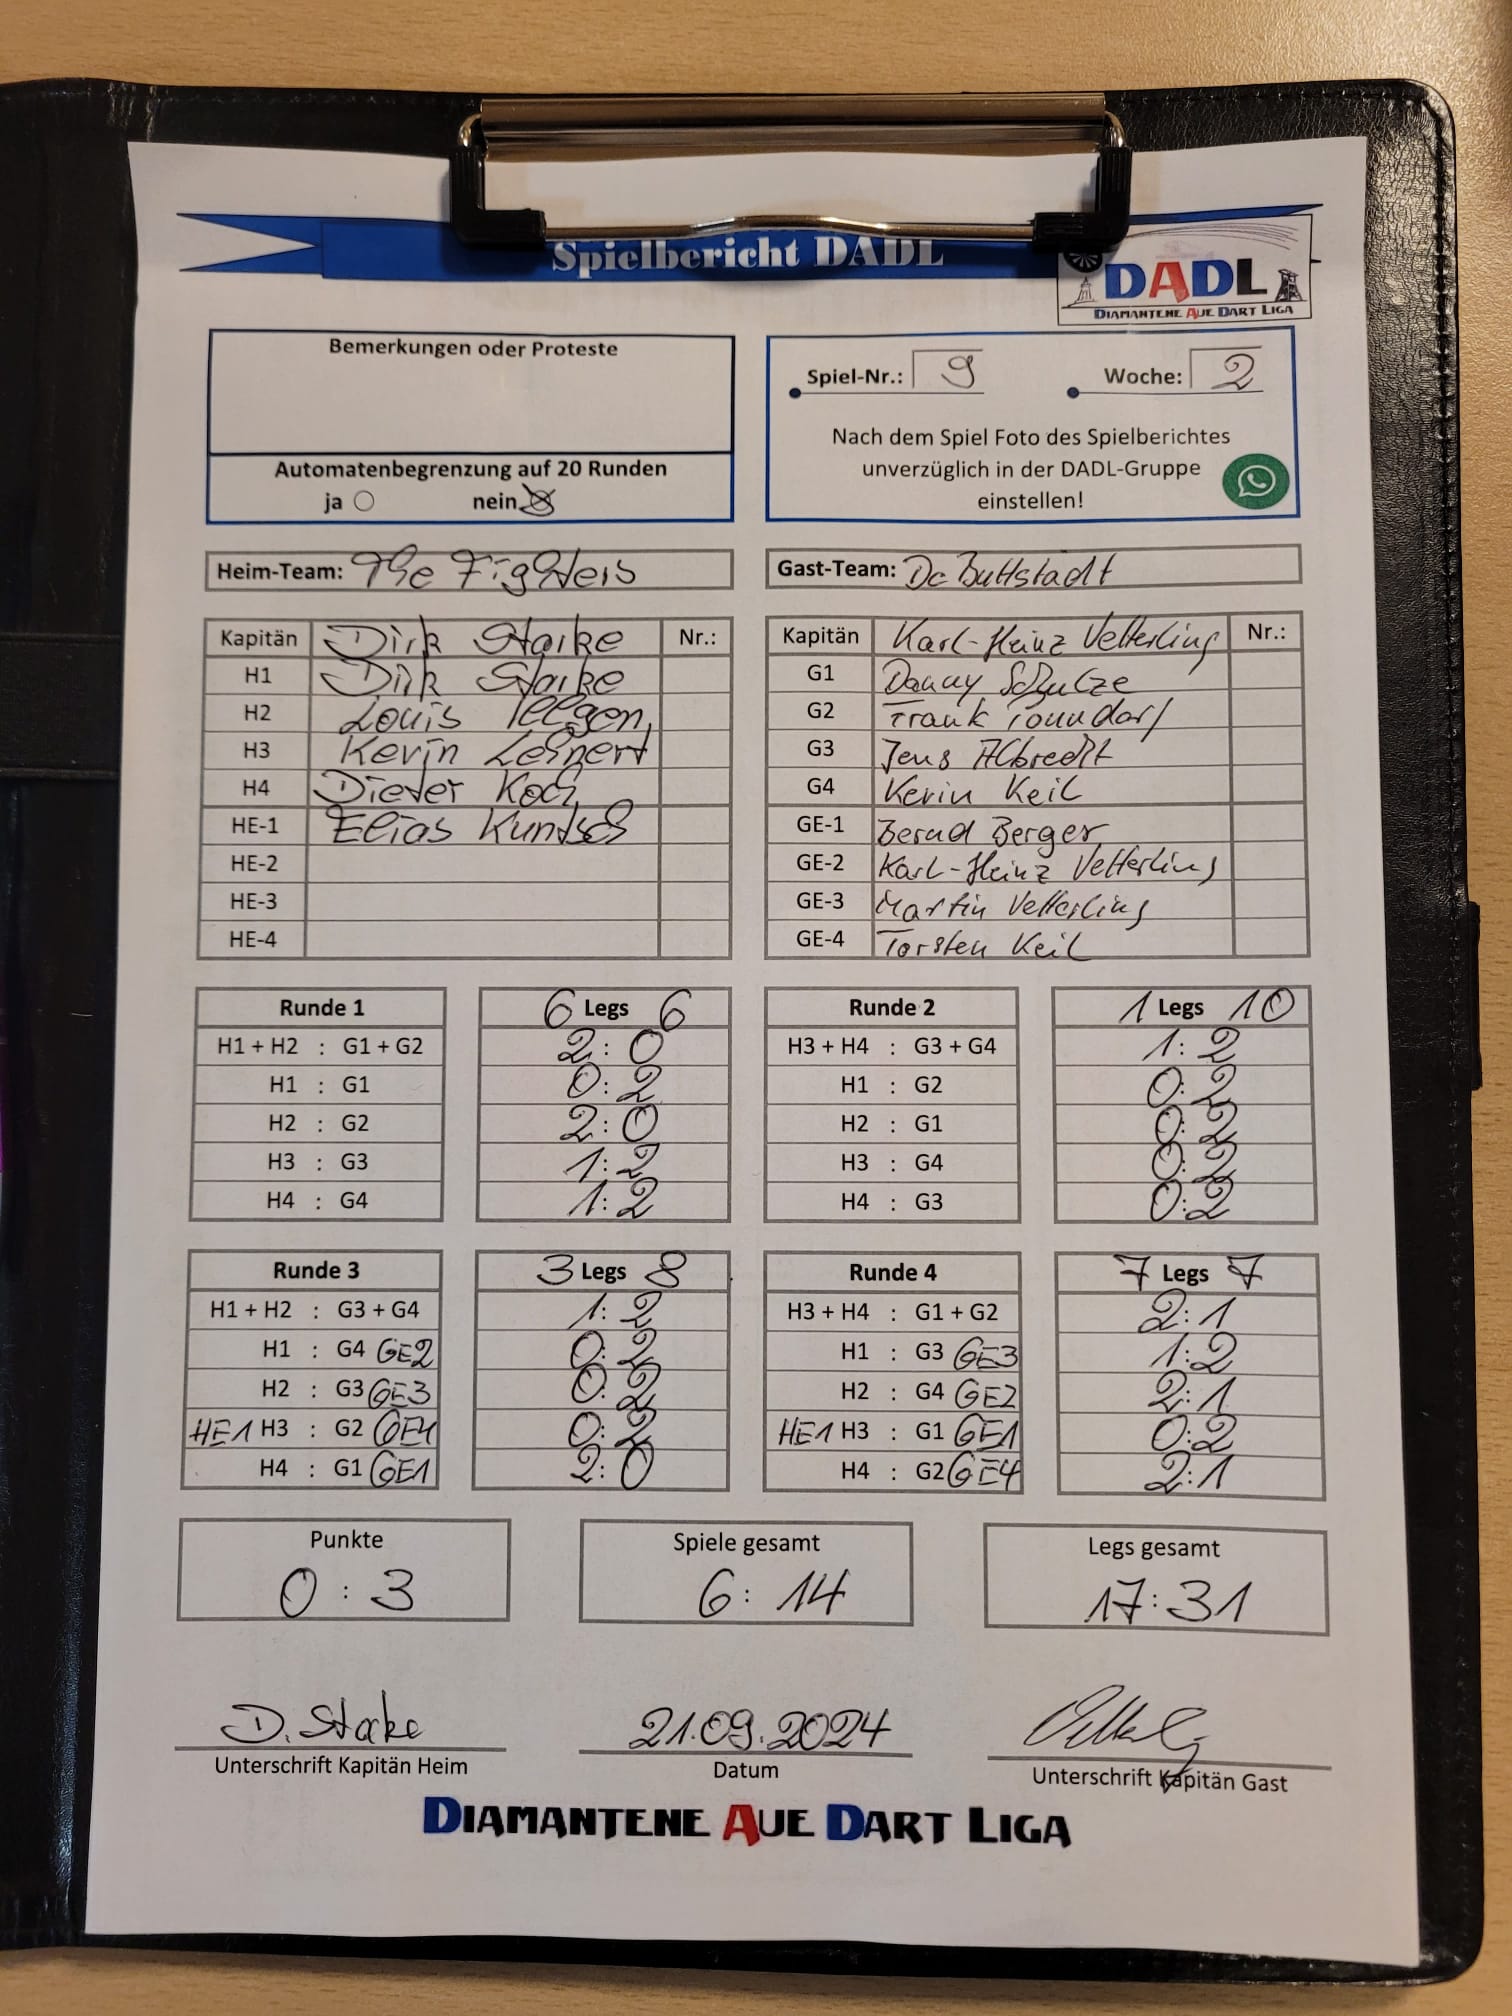 Spielbericht DADL
DADL
DIAMANTENE AUE DART LIGA
Bemerkungen oder Proteste
Automatenbegrenzung auf 20 Runden
ja nein
Spiel-Nr.: 9 Woche: 2
Nach dem Spiel Foto des Spielberichtes
unverzüglich in der DADL-Gruppe
einstellen!
Heim-Team: The Fighters
Kapitän Dirk Starke Nr.:
H1 Dirk Starke
H2 Louis
H3 Kevin Lehnert
H4 Dieter Koch
HE-1 Elias Kuntsch
HE-2
HE-3
HE-4
Gast-Team: Dc Buttstädt
Kapitän Karl-Heinz Vetterling Nr.:
G1 Danny Schulze
G2 Frank
G3 Jens Albrecht
G4 Kevin Keil
GE-1 Bernd Berger
GE-2 Karl-Heinz Vetterling
GE-3 Martin Vetterling
GE-4 Torsten Keil
Runde 1 6 Legs 6
H1 + H2 : G1 + G2 2:0
H1 : G1 0:2
H2 : G2 2:0
H3 : G3 1:2
H4 : G4 1:2
Runde 2 1 Legs 10
H3 + H4 : G3 + G4 1:2
H1 : G2 0:2
H2 : G1 0:2
H3 : G4 0:2
H4 : G3 0:2
Runde 3 3 Legs 8
H1 + H2 : G3 + G4 1:2
H1 : G4 GE2 0:2
H2 : G3 GE3 0:2
HE1 H3 : G2 GE4 0:2
H4 : G1 GE1 2:0
Runde 4 7 Legs 7
H3 + H4 : G1 + G2 2:1
H1 : G3 GE3 1:2
H2 : G4 GE2 2:1
HE1 H3 : G1 GE1 0:2
H4 : G2 GE4 2:1
Punkte
0 : 3
Spiele gesamt
6 : 14
Legs gesamt
17:31
D. Starke
Unterschrift Kapitän Heim
21.09.2024
Datum
Unterschrift Kapitän Gast
DIAMANTENE AUE DART LIGA